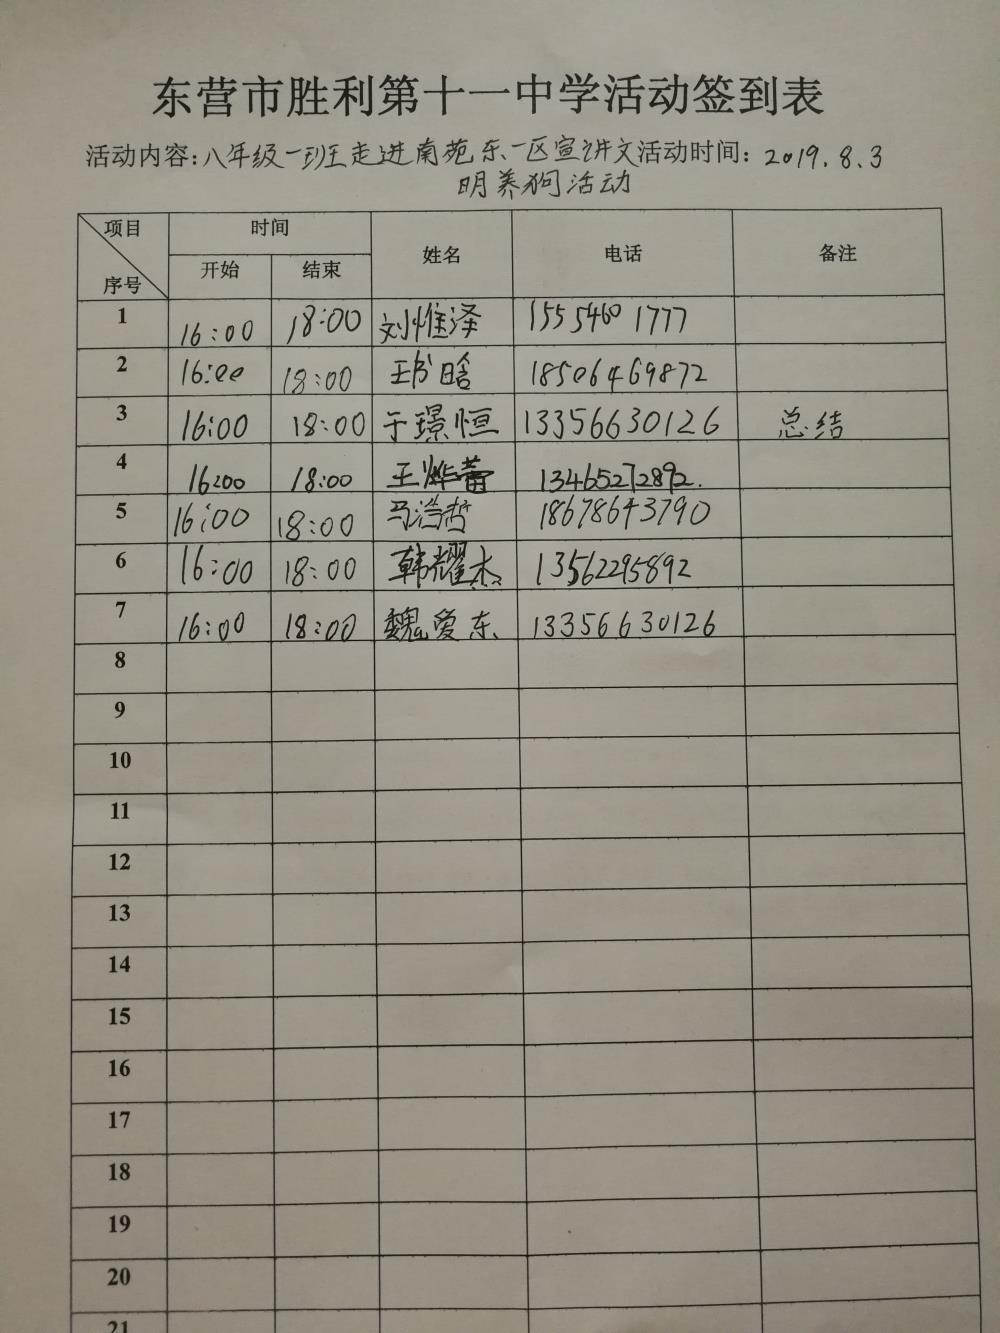 东营市胜利第十一中学活动签到表
活动内容：八年级一班走进南苑东一区宣讲文活动时间：2019.8.3
明养狗活动
项目 时间 姓名 电话 备注
序号 开始 结束
1 16:00 18:00 刘惟泽 15554601777
2 16:00 18:00 王书晗 18506469872
3 16:00 18:00 于璟恒 13356630126 总结
4 16:00 18:00 王烨蕾 13465272892.
5 16:00 18:00 马浩哲 18678643790
6 16:00 18:00 韩耀杰 13562295892
7 16:00 18:00 魏爱东 13356630126
8
9
10
11
12
13
14
15
16
17
18
19
20
21